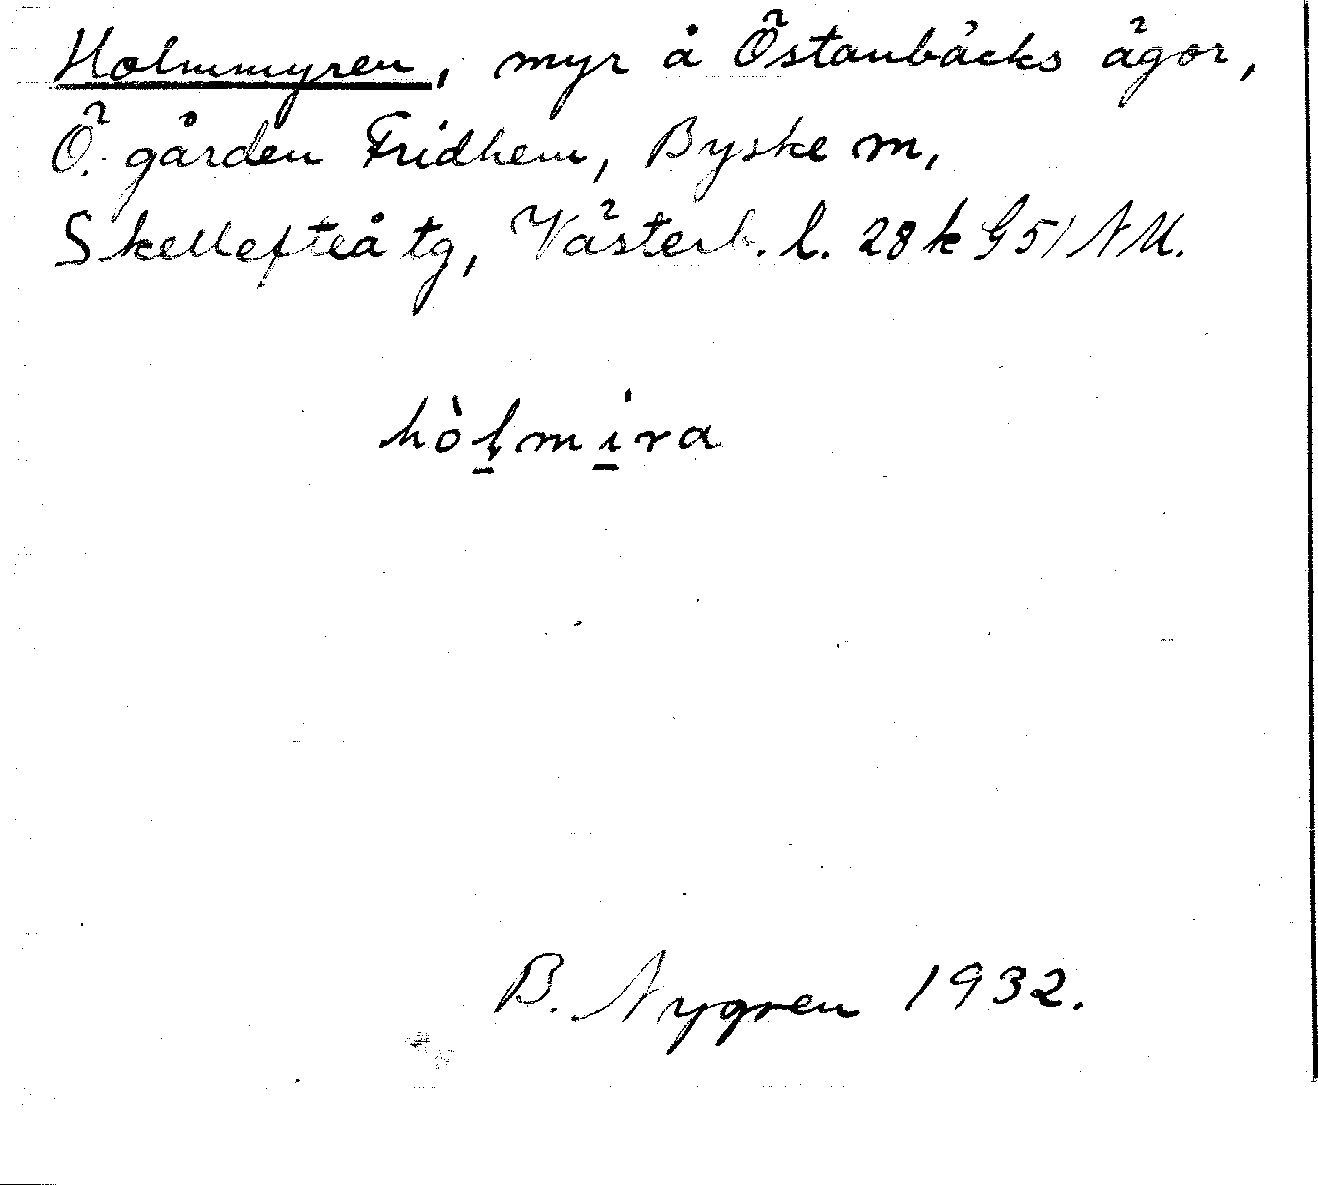 Holmmyren, myr å Östanbäcks ägor,
Ö. gården Fridhem, Byske sn,
Skellefteå tg, Västerb. l. 28 k G 51 NU.
hòl̠mi̠ra
B. Nygren 1932.